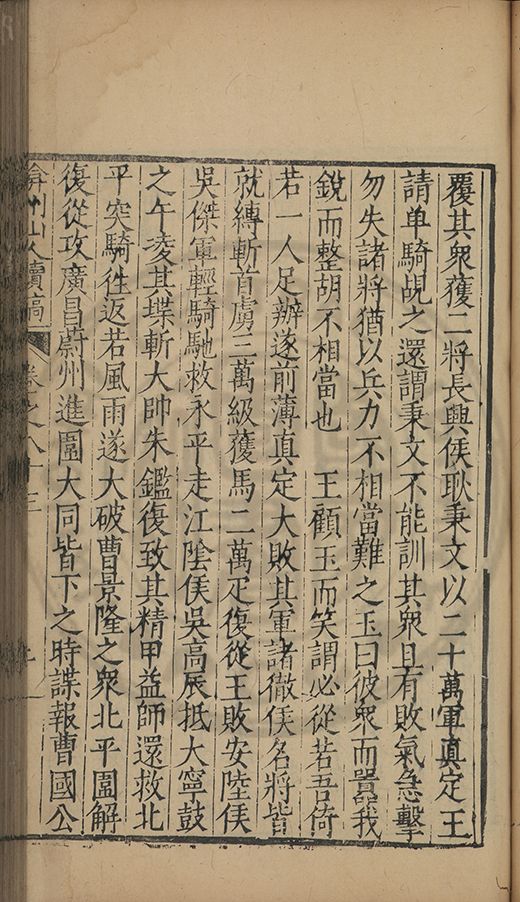 覆其衆獲二將長興侯耿秉文以二十萬軍真定王
請单騎覘之還謂秉文不能訓其衆且有敗氣急擊
勿失諸將猶以兵力不相當難之玉曰彼衆而嚣我
銳而整胡不相當也 王顧玉而笑謂必從若吾倚
若一人足辦遂前薄真定大敗其軍諸徹侯名將皆
就縳斬首虜三萬級獲馬二萬疋復從王敗安陸侯
吳傑軍輕騎馳救永平走江陰侯吳高辰抵大寧鼓
之午凌其堞斬大帥朱鑑復致其精甲益師還救北
平突騎往返若風雨遂大破曹景隆之衆北平圍解
復從攻廣昌蔚州進圍大同皆下之時諜報曹國公
弇州山人續稿 卷之八十三